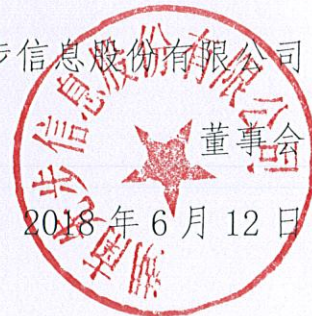 步信息股份有限公司
董事会
2018 年 6 月 12 日
湖南 步信息股份有限公司